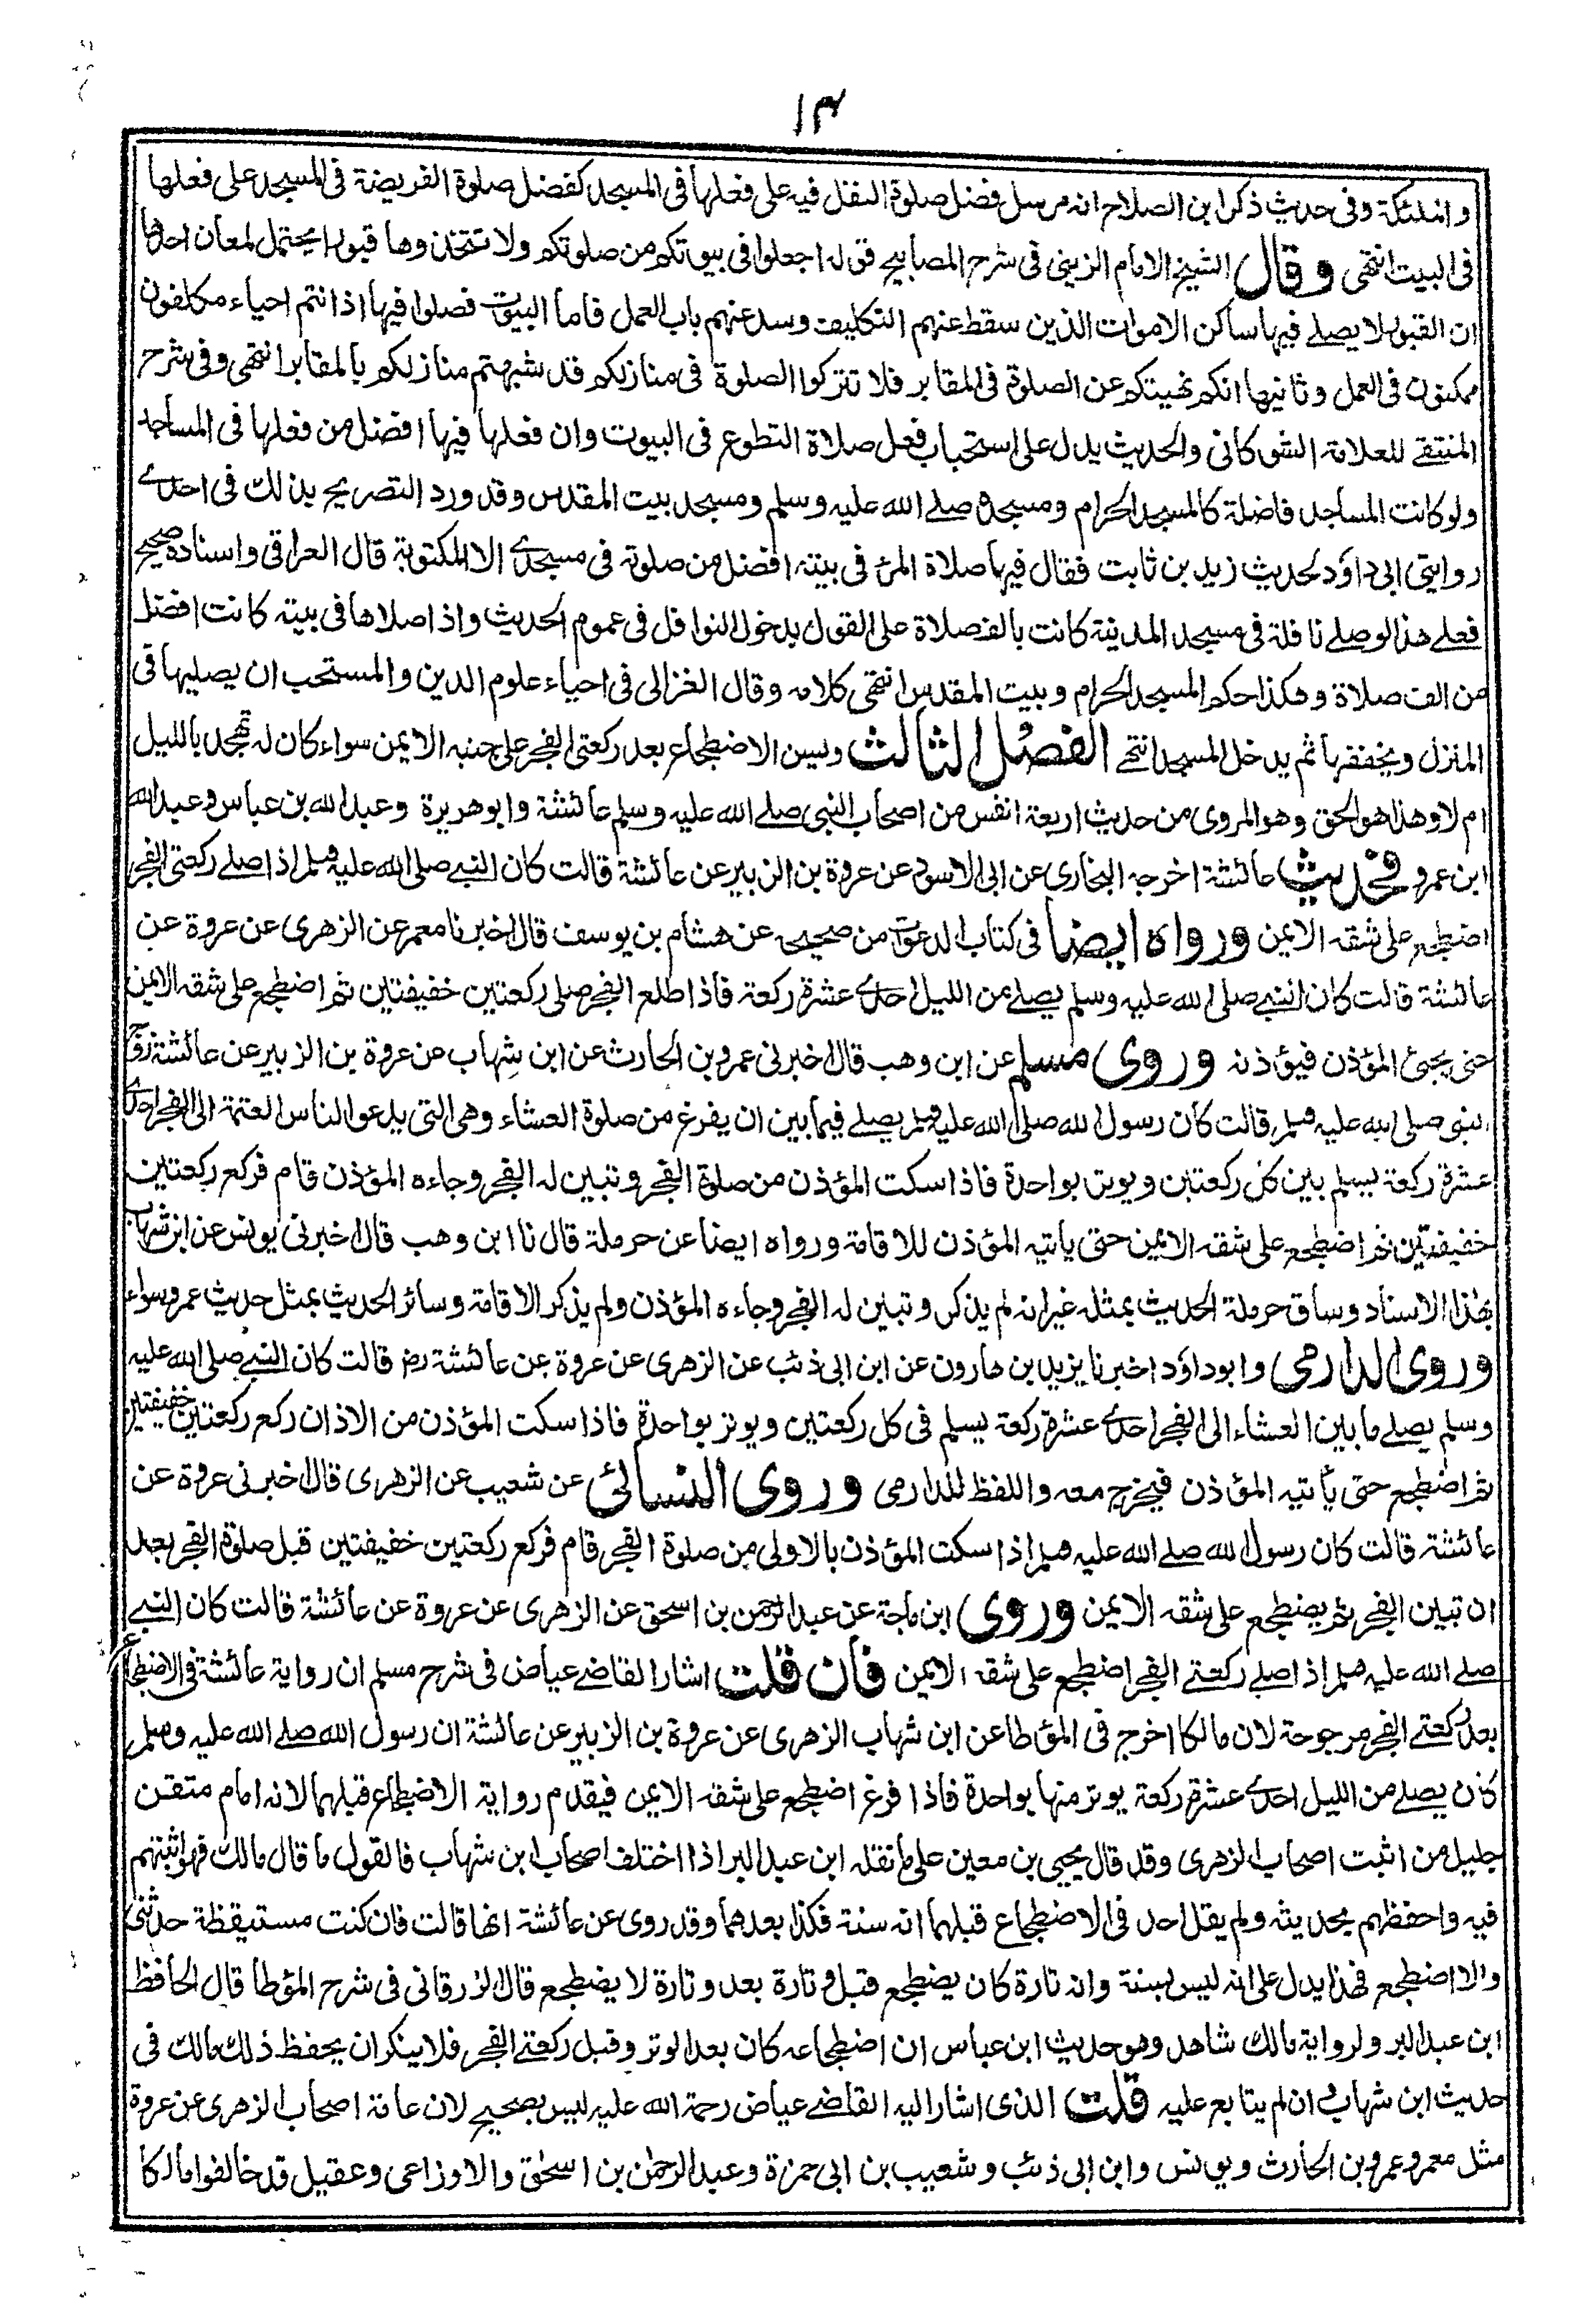 ١٣
والملئكة وفى حديث ذكر ابن الصلاح انه مرسل فضل صلوة النفل فيه على فعلها فى المسجد كفضل صلوة الفريضة فى المسجد على فعلها
فى البيت انتهى وقال الشيخ الامام الزينى فى شرح المصابيح قوله اجعلوا فى بيوتكم من صلوتكم ولا تتخذوها قبورا يحتمل لمعان احدها
ان القبور لا يصلے فيها ساكن الاموات الذين سقط عنهم التكليف وسد عنهم باب العمل فاما البيوت فصلوا فيها اذا نتم احياء مكلفون
ممكنون فى العمل وثانيها انكم نهيتكم عن الصلوة فى المقابر فلا تتركوا الصلوة فى منازلكم قد شبهتم منازلكم بالمقابر انتهى وفى شرح
المنتقے للعلامة الشوكانى والحديث يدل على استحباب فعل صلاة التطوع فى البيوت وان فعلها فيها افضل من فعلها فى المساجد
ولو كانت المساجد فاضلة كالمسجد الحرام ومسجده صلے الله عليه وسلم ومسجد بيت المقدس وقد ورد التصريح بذلك فى احدے
روايتى ابى داؤد لحديث زيد بن ثابت فقال فيها صلاة المرٔ فى بيته افضل من صلوته فى مسجدے الا المكتوبة قال العراقى واسناده صحيح
فعلے هذا لو صلے نافلة فى مسجد المدينة كانت بالف صلاة على القول بدخول النوافل فى عموم الحديث واذا صلاها فى بيته كانت افضل
من الف صلاة وهكذا حكم المسجد الحرام وبيت المقدس انتهى كلامه وقال الغزالى فى احياء علوم الدين والمستحب ان يصليها فى
المنزل ويخففها ثم يدخل المسجد انتهے الفصل الثالث ويسن الاضطجاع بعد ركعتى الفجر على جنبه الايمن سواء كان له تهجد بالليل
ام لا وهذا هو الحق وهو المروى من حديث اربعة انفس من اصحاب النبى صلے الله عليه وسلم عائشة وابو هريرة وعبد الله بن عباس وعبد الله
ابن عمرو فحديث عائشة اخرجه البخارى عن ابى الاسود عن عروة بن الزبير عن عائشة قالت كان النبے صلى الله عليه وسلم اذا صلے ركعتى الفجر
اضطجع على شقه الايمن ورواه ايضا فى كتاب الدعوات من صحيحه عن هشام بن يوسف قال اخبرنا معمر عن الزهرى عن عروة عن
عائشة قالت كان النبے صلى الله عليه وسلم يصلے من الليل احدے عشرة ركعة فاذا طلع الفجر صلى ركعتين خفيفتين ثم اضطجع على شقه الايمن
حتى يجئ المؤذن فيؤذنه وروى مسلم عن ابن وهب قال اخبرنى عمرو بن الحارث عن ابن شهاب عن عروة بن الزبير عن عائشة زوج
النبى صلى الله عليه وسلم قالت كان رسول الله صلى الله عليه وسلم يصلے فيما بين ان يفرغ من صلوة العشاء وهى التى يدعو الناس العتمة الى الفجر احدے
عشرة ركعة يسلم بين كل ركعتين ويوتر بواحدة فاذا سكت المؤذن من صلوة الفجر وتبين له الفجر وجاءه المؤذن قام فركع ركعتين
خفيفتين ثم اضطجع على شقه الايمن حتى يأتيه المؤذن للاقامة ورواه ايضا عن حرملة قال نا ابن وهب قال اخبرنى يونس عن ابن شهاب
بهذا الاسناد وساق حرملة الحديث بمثله غير انه لم يذكر وتبين له الفجر وجاءه المؤذن ولم يذكر الاقامة وسائر الحديث بمثل حديث عمرو سواء
وروى الدارمى وابو داؤد اخبرنا يزيد بن هارون عن ابن ابى ذئب عن الزهرى عن عروة عن عائشة رض قالت كان النبے صلى الله عليه
وسلم يصلے ما بين العشاء الى الفجر احدے عشرة ركعة يسلم فى كل ركعتين ويوتر بواحدة فاذا سكت المؤذن من الاذان ركع ركعتين خفيفتين
ثم اضطجع حتى يأتيه المؤذن فيخرج معه واللفظ للدارمى وروى النسائى عن شعيب عن الزهرى قال اخبرنى عروة عن
عائشة قالت كان رسول الله صلے الله عليه وسلم اذا سكت المؤذن بالاولى من صلوة الفجر قام فركع ركعتين خفيفتين قبل صلوة الفجر بعد
ان تبين الفجر ثم يضطجع على شقه الايمن وروى ابن ماجة عن عبد الرحمن بن اسحق عن الزهرى عن عروة عن عائشة قالت كان النبے
صلے الله عليه وسلم اذا صلے ركعتے الفجر اضطجع على شقه الايمن فان قلت اشار القاضے عياض فى شرح مسلم ان رواية عائشة فى الاضطجاع
بعد ركعتے الفجر مرجوحة لان مالكا اخرج فى المؤطا عن ابن شهاب الزهرى عن عروة بن الزبير عن عائشة ان رسول الله صلے الله عليه وسلم
كان يصلے من الليل احدے عشرة ركعة يوتر منها بواحدة فاذا فرغ اضطجع على شقه الايمن فيقدم رواية الاضطجاع قبلهما لانه امام متقن
جليل من اثبت اصحاب الزهرى وقد قال يحيى بن معين على ما نقله ابن عبد البر اذا اختلف اصحاب ابن شهاب فالقول ما قال مالك فهو اثبتهم
فيه واحفظهم بحديثه ولم يقل احد فى الاضطجاع قبلهما انه سنة فكذا بعدهما وقد روى عن عائشة انها قالت فان كنت مستيقظة حدثنى
والا اضطجع فهذا يدل على انه ليس بسنة وانه تارة كان يضطجع قبل وتارة بعد وتارة لا يضطجع قال الزرقانى فى شرح المؤطا قال الحافظ
ابن عبد البر ولرواية مالك شاهد وهو حديث ابن عباس ان اضطجاعه كان بعد الوتر وقبل ركعتے الفجر فلا ينكر ان يحفظ ذلك مالك فى
حديث ابن شهاب وان لم يتابع عليه قلت الذى اشار اليه القاضے عياض رحمة الله عليه ليس بصحيح لان عامة اصحاب الزهرى عن عروة
مثل معمر وعمرو بن الحارث ويونس وابن ابى ذئب وشعيب بن ابى حمزة وعبد الرحمٰن بن اسحٰق والاوزاعى وعقيل قد خالفوا مالكا